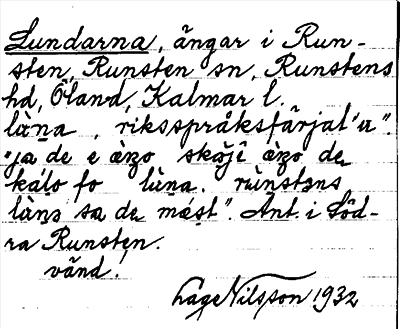 Lundarna, ängar i Run-
sten, Runsten sn, Runstens
hd, Öland, Kalmar l.
lùṉa, riksspråksfärjat "u".
"ja de e ằŋo skằjĭ ằŋo de
kálo fo lùṉa. rùnstəns
lùṉə sa de mést". Ant. i Söd-
ra Runsten.
vänd!
Låge Nilsson 1932